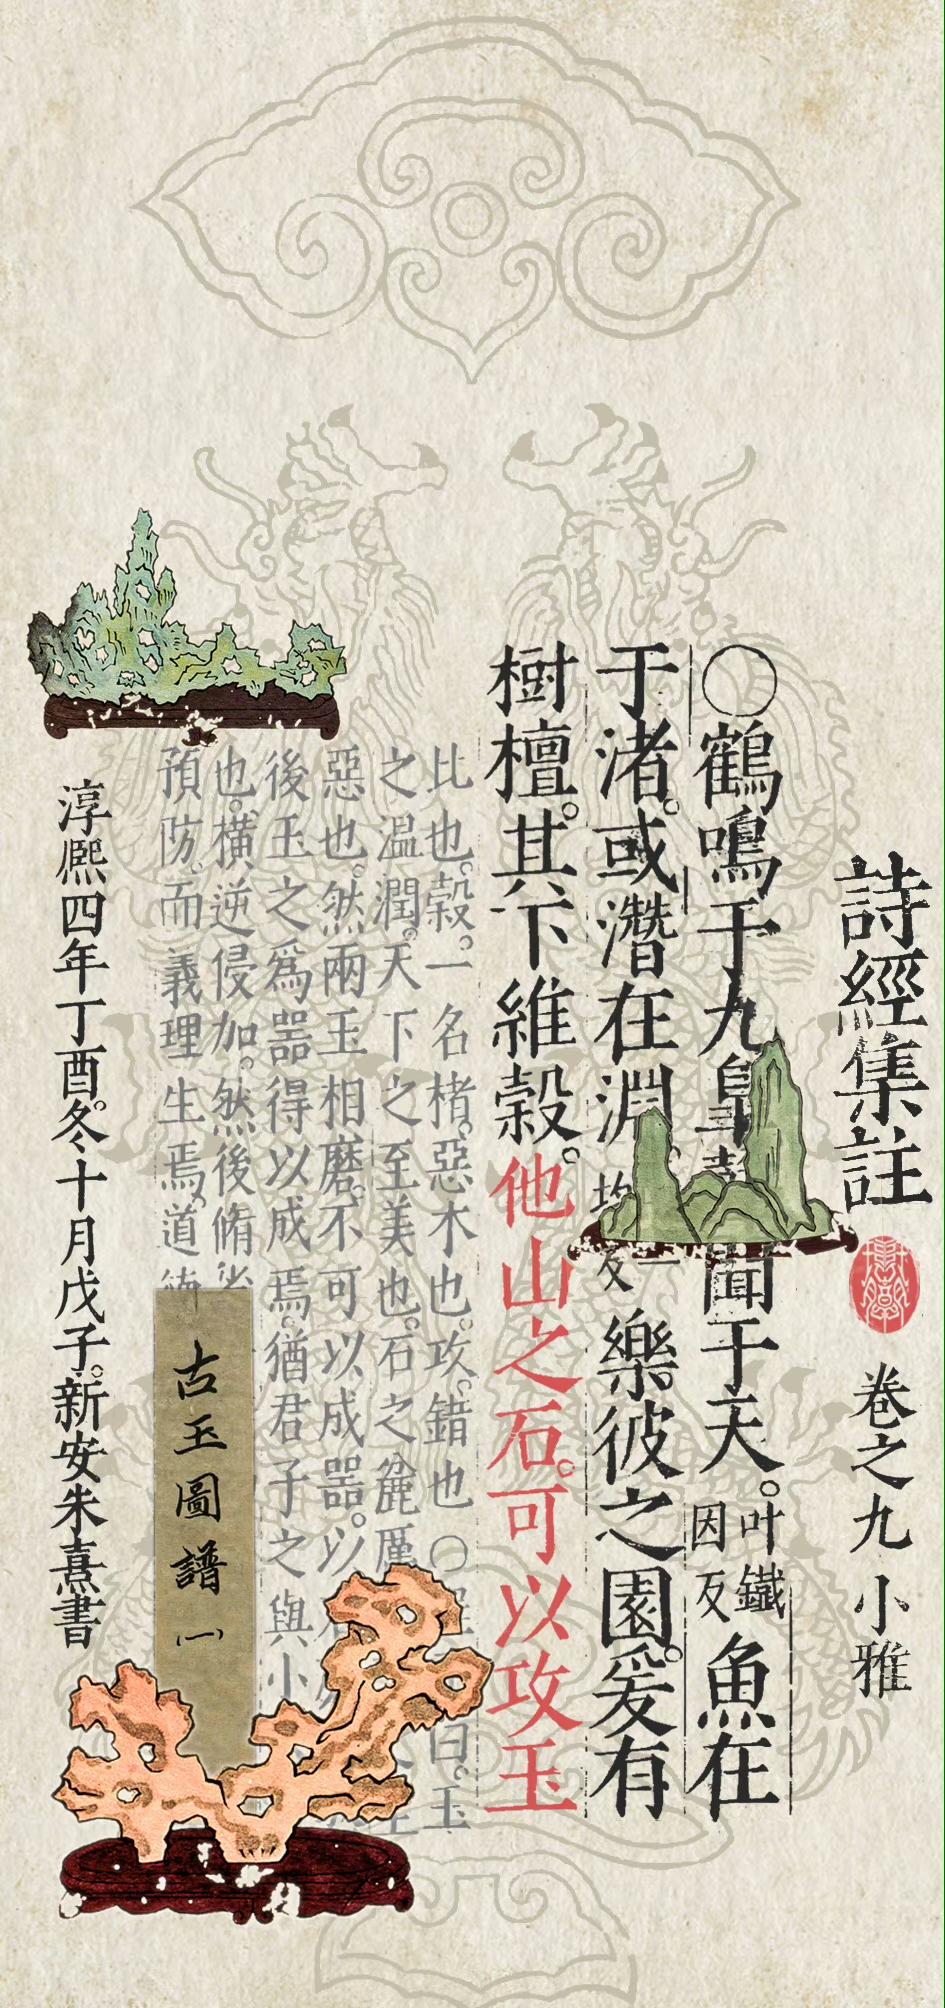 詩經集註
卷之九 小雅
○鶴鳴于九皐聲聞于天。叶鐵因反魚在
于渚。或潛在淵。均反一樂彼之園。爰有
樹檀。其下維榖。他山之石。可以攻玉
比也。榖。一名楮。惡木也。攻。錯也○曰。玉
之温潤。天下之至美也。石之麄厲
惡也。然兩玉相磨。不可以成噐。以
後玉之爲噐得以成焉。猶君子之與小
也。橫逆侵加。然後脩省
預防。而義理生焉。道
淳熈四年丁酉。冬十月戊子。新安朱熹書
古玉圖譜 一